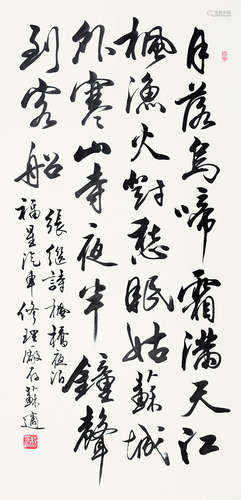 月落烏啼霜滿天江
楓漁火對愁眠姑蘇城
外寒山寺夜半鐘聲
到客船
張繼詩楓橋夜泊
福星汽車修理廠 蘇適